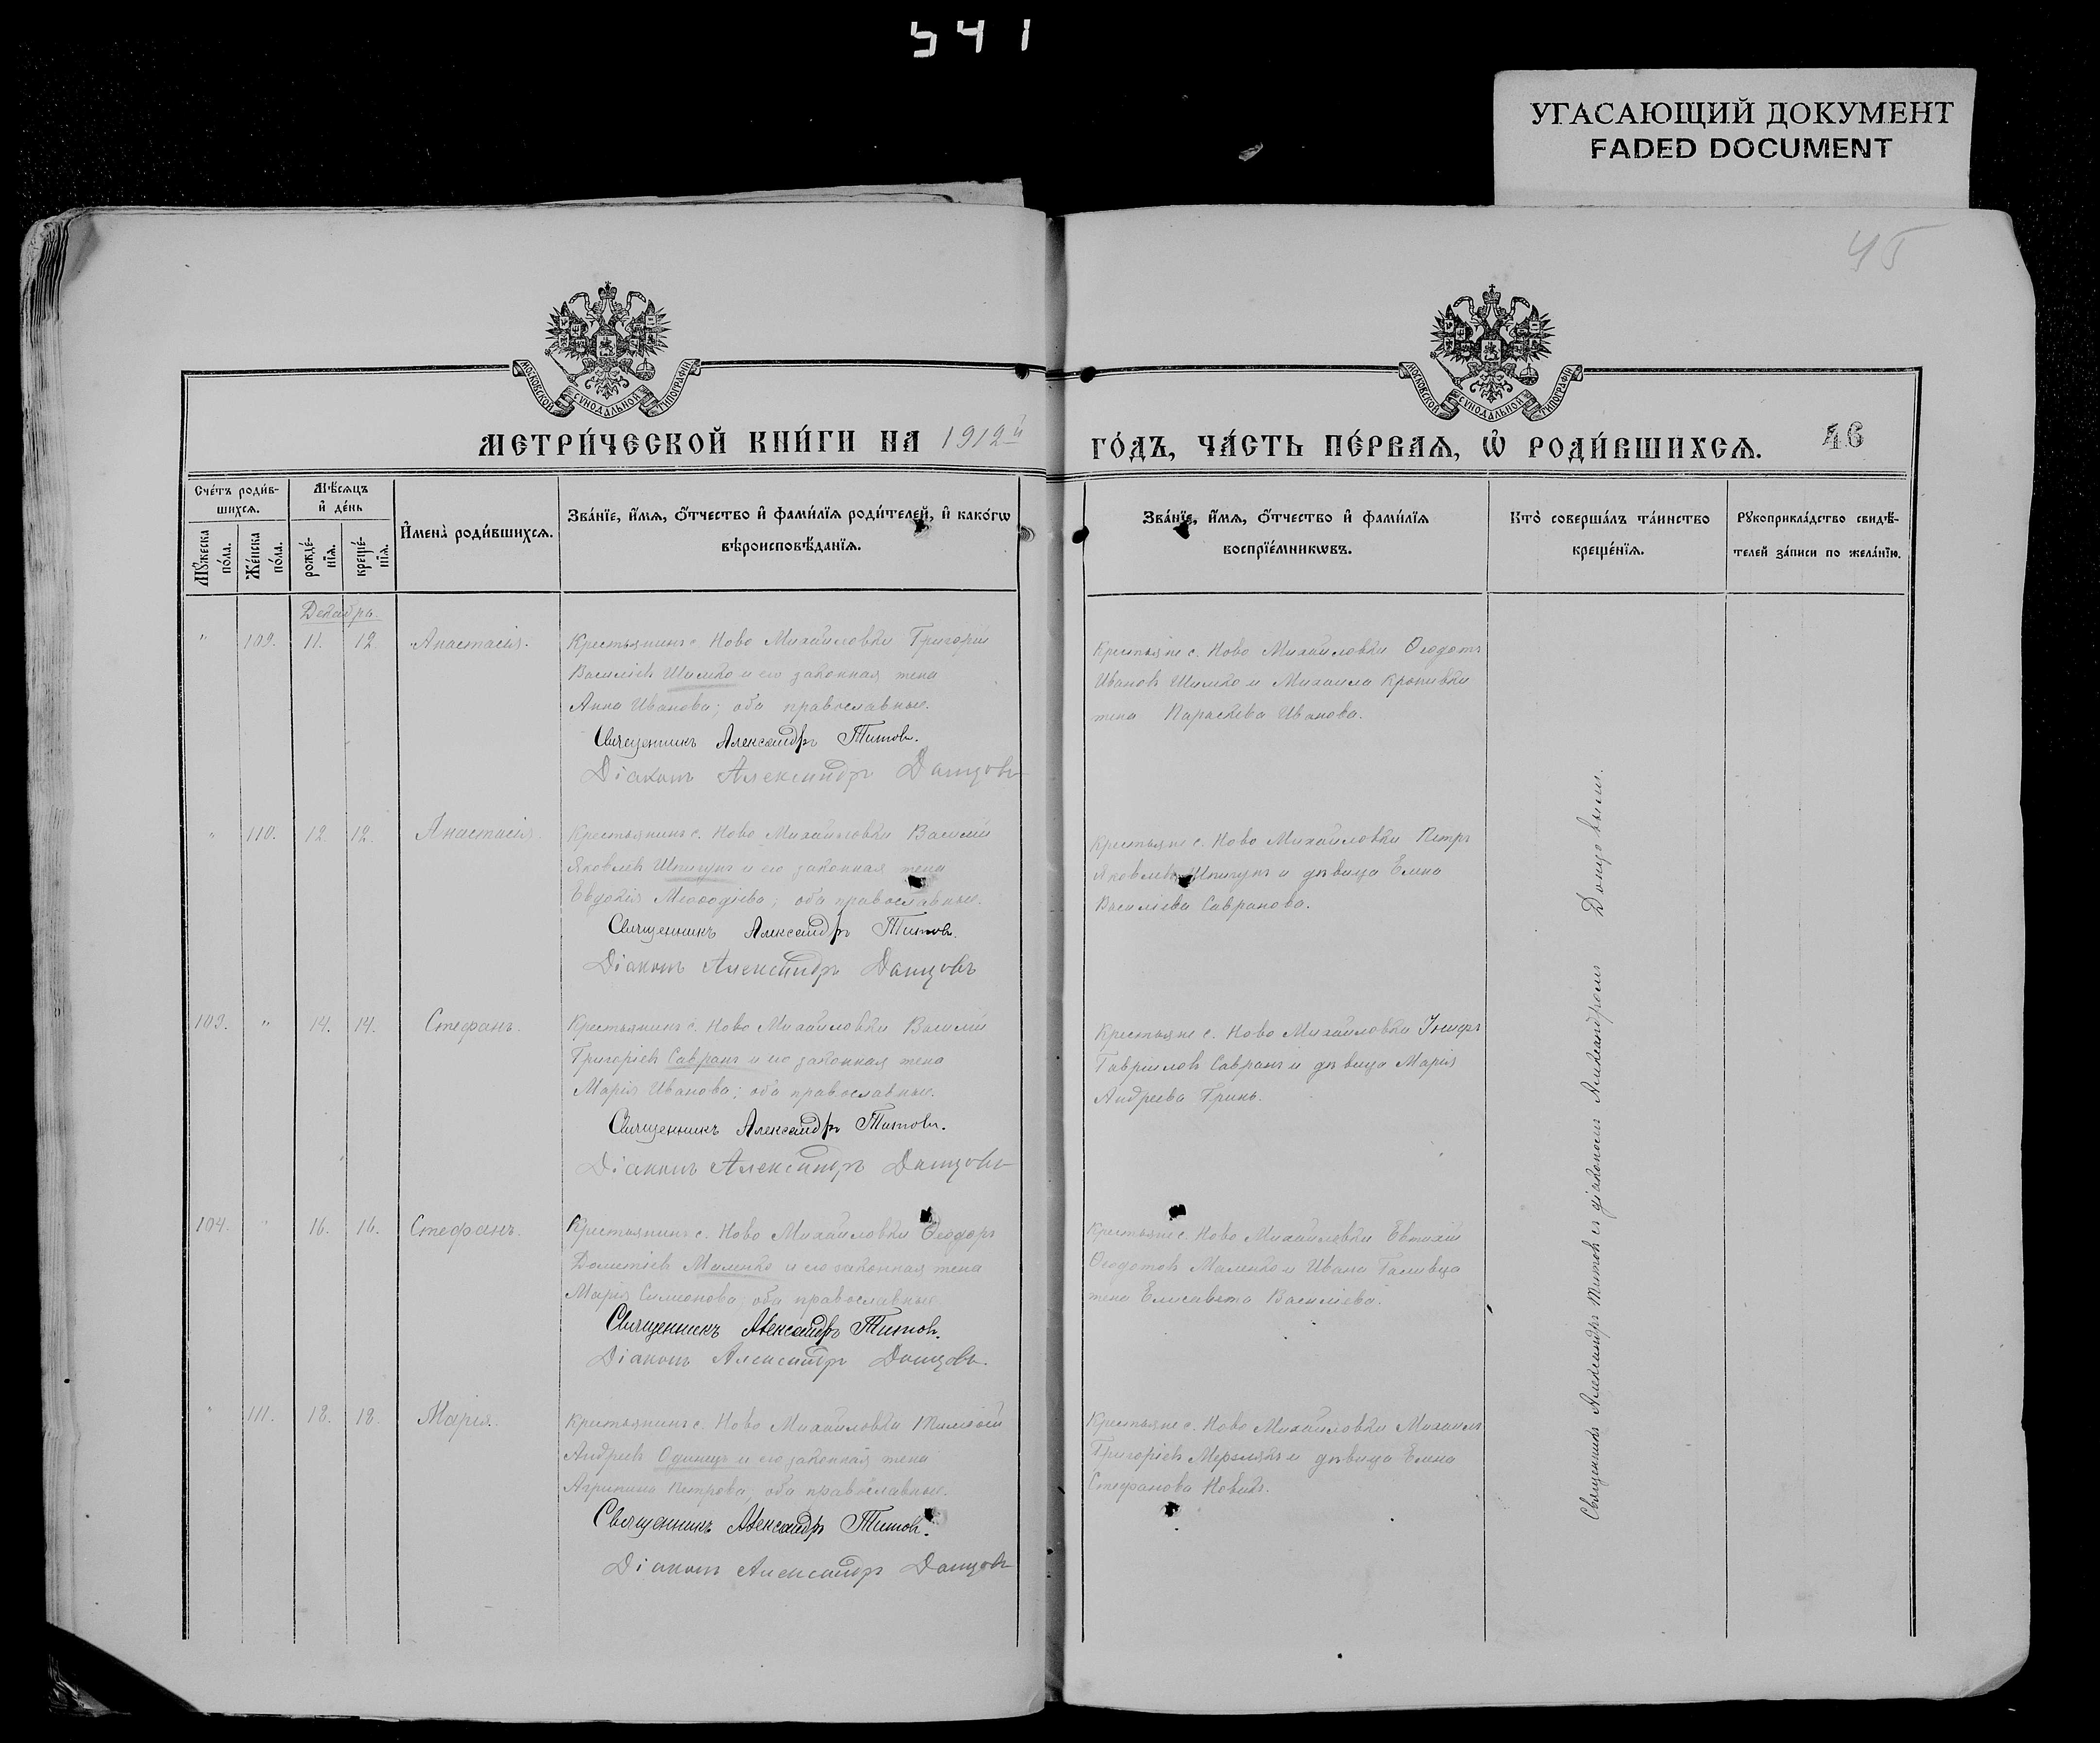 541
УГАСАЮЩИЙ ДОКУМЕНТ
FADED DOCUMENT
45
МОСКОВСКОЙ СѴНОДАЛЬНОЙ ТИПОГРАФІИ
МОСКОВСКОЙ СѴНОДАЛЬНОЙ ТИПОГРАФІИ
МЕТРИ́ЧЕСКОЙ КНИ́ГИ НА 1912й
ГО́ДЪ, ЧА́СТЬ ПЕ́РВАѦ, Ѡ҆ РОДИ́ВШИХСѦ.
46
Сче́тъ роди́в-
шихсѧ.
Мꙋ́жеска по́ла.
Же́нска по́ла.
Мѣ́сѧцъ
и҆ де́нь
рожде́-нїѧ.
креще́-нїѧ.
И҆мена̀ роди́вшихсѧ.
Зва́нїе, и҆́мѧ, ѻ҆́тчество и҆ фами́лїѧ роди́телей, и҆ како́гѡ
вѣроисповѣ́данїѧ.
Зва́нїе, и҆́мѧ, ѻ҆́тчество и҆ фами́лїѧ
воспрїе́мникѡвъ.
Кто̀ соверша́лъ та́инство
креще́нїѧ.
Рꙋкоприкла́дство свидѣ́-
телей за́писи по жела́нїю.
Декабрь.
" 109. 11. 12. Анастасія.
Крестьянинъ с. Ново Михайловки Григорій
Василіевъ Шимко и его законная жена
Анна Иванова; оба православные.
Священникъ Александръ Титовъ.
Діаконъ Александръ Донцовъ
Крестьяне с. Ново Михайловки Ѳеодотъ
Ивановъ Шимко и Михаила Кропивки
жена Параскева Иванова.
" 110. 12. 12. Анастасія.
Крестьянинъ с. Ново Михайловки Василій
Яковлевъ Шпигунъ и его законная жена
Евдокія Меѳодіева; оба православные.
Священникъ Александръ Титовъ.
Діаконъ Александръ Донцовъ
Крестьяне с. Ново Михайловки Петръ
Яковлевъ Шпигунъ и дѣвица Елена
Васильева Савранова.
103. " 14. 14. Стефанъ.
Крестьянинъ с. Ново Михайловки Василій
Григоріевъ Савранъ и его законная жена
Марія Иванова; оба православные.
Священникъ Александръ Титовъ.
Діаконъ Александръ Донцовъ
Крестьяне с. Ново Михайловки
Гавриловъ Савранъ и дѣвица Марія
Андреева Гринь.
104. " 16. 16. Стефанъ.
Крестьянинъ с. Ново Михайловки Ѳеодоръ
Дометіевъ Маленко и его законная жена
Марія Симеонова; оба православные
Священникъ Александръ Титовъ.
Діаконъ Александръ Донцовъ.
Крестьяне с. Ново Михайловки Евтихій
Ѳеодотовъ Маленко и Ивана
жена Елисавета Василіева.
" 111. 18. 18. Марія.
Крестьянинъ с. Ново Михайловки Тимоѳей
Андреевъ Одинецъ и его законная жена
Агрипина Петрова; оба православные.
Священникъ Александръ Титовъ.
Діаконъ Александръ Донцовъ
Крестьяне с. Ново Михайловки Михаилъ
Григоріевъ Мерзлякъ и дѣвица Елена
Стефанова Новикъ.
Священникъ Александръ Титовъ съ діакономъ Александромъ Донцовымъ.